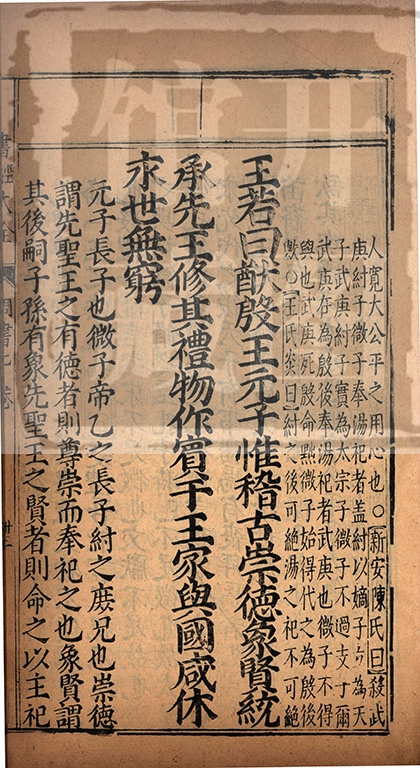 人寬大公平之用心也○新安陳氏曰殺武
庚紂子微子奉湯祀者盖紂以嫡子而為天
子武庚紂子實為太宗子微子不過支子爾
武庚存為殷後奉湯祀者武庚也微子不得
與也武庚死殷命黜微子始得代之為殷後
歟○王氏炎曰紂之後可絶湯之祀不可絶
王若曰猷殷王元子惟稽古崇德象賢統
承先王修其禮物作賓于王家與國咸休
永世無窮
元子長子也微子帝乙之長子紂之庶兄也崇德
謂先聖王之有德者則尊崇而奉祀之也象賢謂
其後嗣子孫有象先聖王之賢者則命之以主祀
書經大全 周書七卷